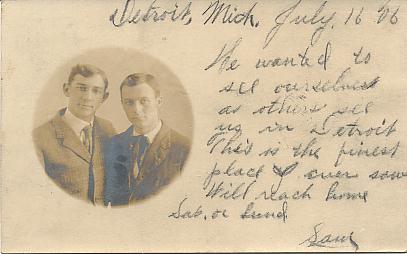 Detroit, Mich. July, 16 '06
We wanted to
see ourselves
as others see
us in Detroit
This is the finest
place I ever saw
Will reach home
Sat. or Sund.
Sam